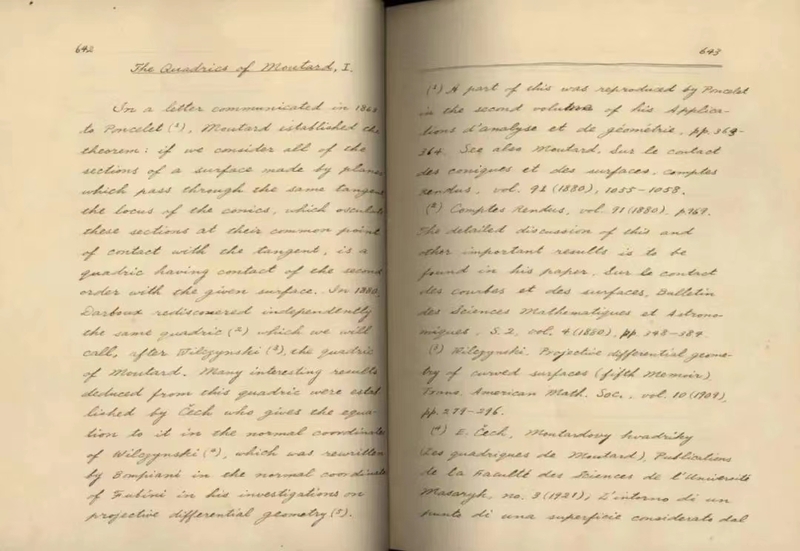 642
The Quadrics of Moutard, I.
In a letter communicated in
to Poncelet (¹), Moutard established the
theorem: if we consider all of the
sections of a surface made by planes
which pass through the same tangent
the locus of the conics, which osculate
these sections at their common point
of contact with the tangent, is a
quadric having contact of the second
order with the given surface. In 1880,
Darboux rediscovered independently
the same quadric (²) which we will
call, after Wilczynski (³), the quadric
of Moutard. Many interesting results
deduced from this quadric were estab
lished by Čech who gives the equa-
tion to it in the normal coordinates
of Wilczynski (⁴), which was rewritten
by Bompiani in the normal coordinate
of Fubini in his investigations on
projective differential geometry (⁵).
643
(¹) A part of this was reproduced by Poncelet
in the second volume of his Applica-
tions d'analyse et de géométrie, pp. 363-
364. See also Moutard, Sur le contact
des coniques et des surfaces, comptes
rendus, vol. 91 (1880), 1055-1058.
(²) Comptes Rendus, vol. 91 (1880), p.
The detailed discussion of this and
other important results is to be
found in his paper, Sur le contact
des courbes et des surfaces, Bulletin
des Sciences Mathématiques et Astrono-
miques, S. 2, vol. 4 (1880), pp. 348-384.
(³) Wilczynski, Projective differential geome-
try of curved surfaces (fifth Memoir),
Trans. American Math. Soc., vol. 10 (1909),
pp. 279-296.
(⁴) E. Čech, Moutardovy kvadriky
(Les quadriques de Moutard), Publications
de la Faculté des Sciences de l'Université
Masaryk, no. 3 (1921); L'intorno di un
punto di una superficie considerato dal